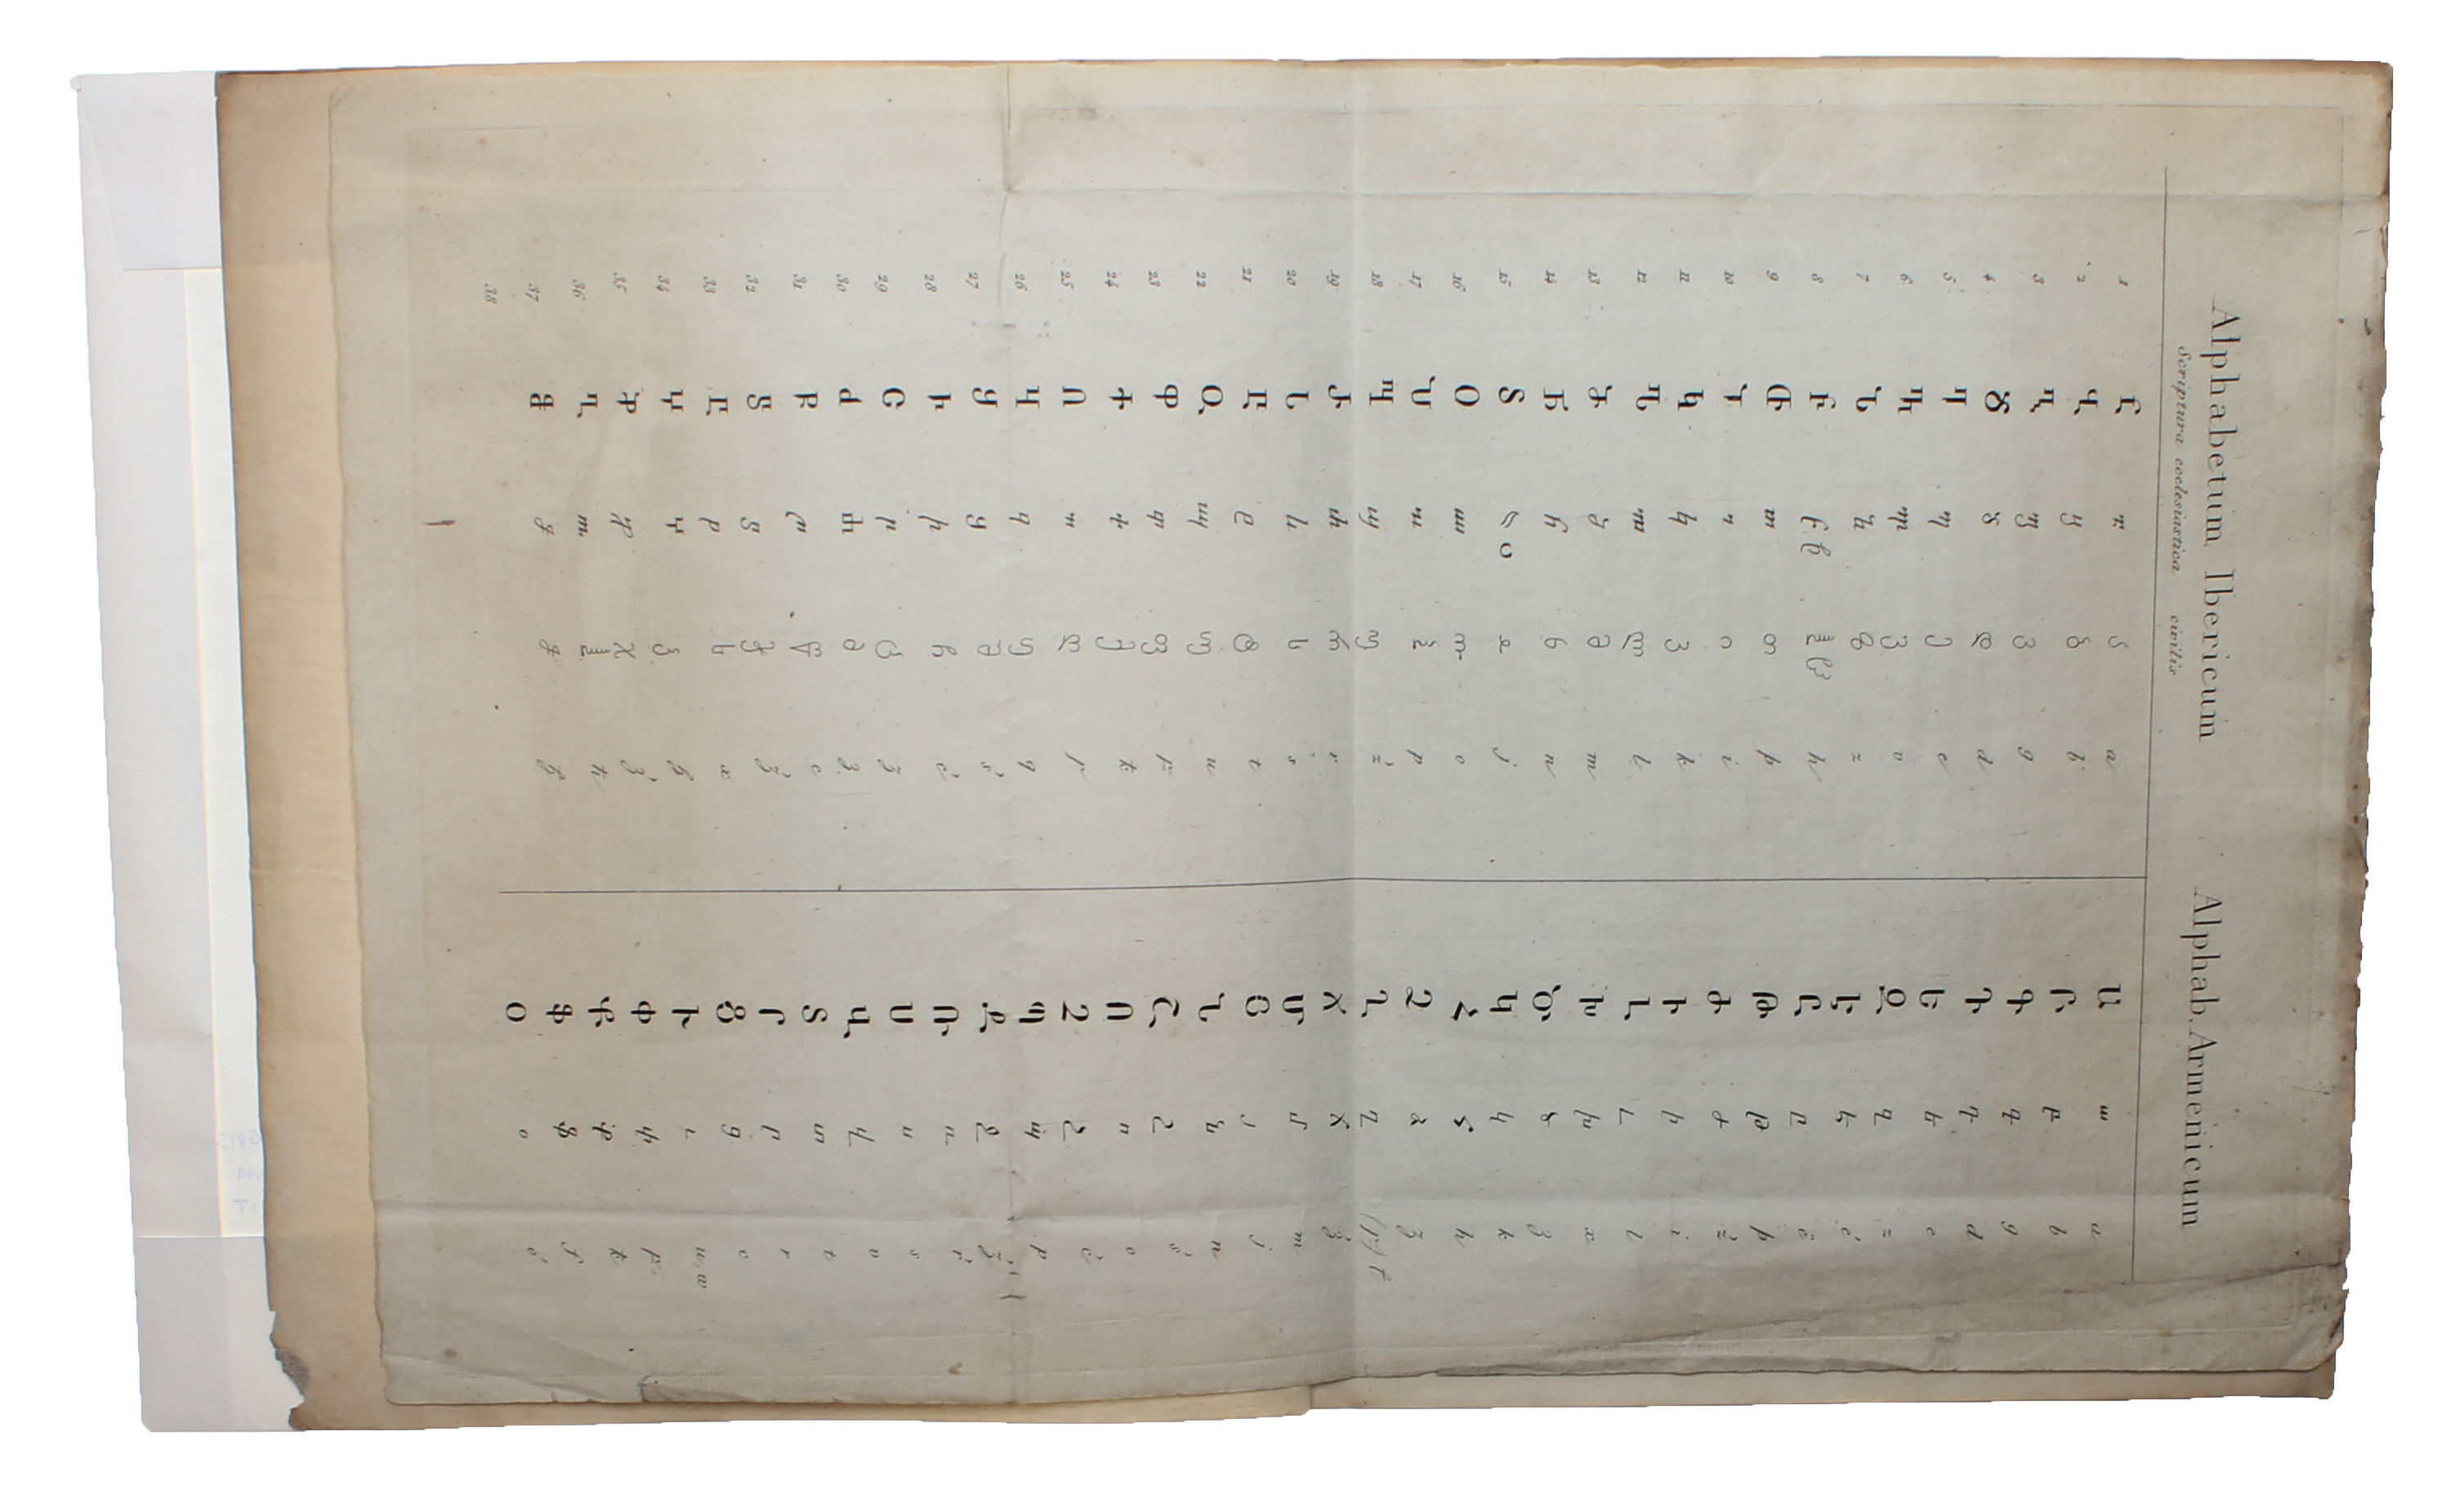 Alphabetum Ibericum Alphab. Armenicum
Scriptura ecclesiastica civilis
1 Ⴀ ⴀ ა a Ա ա a
2 Ⴁ ⴁ ბ b Բ բ b
3 Ⴂ ⴂ გ g Գ գ g
4 Ⴃ ⴃ დ d Դ դ d
5 Ⴄ ⴄ ე e Ե ե e
6 Ⴅ ⴅ ვ v Զ զ z
7 Ⴆ ⴆ ზ z Է է
8 Ⴡ ⴡ ჱ h Ը ը
9 Ⴇ ⴇ თ þ Թ թ þ
10 Ⴈ ⴈ ი i Ժ ժ ž
11 Ⴉ ⴉ კ k Ի ի i
12 Ⴊ ⴊ ლ l Լ լ l
13 Ⴋ ⴋ მ m Խ խ x
14 Ⴌ ⴌ ნ n Ծ ծ ʒ
15 Ⴢ ⴢ ჲ j Կ կ k
16 Ⴍ ⴍ ო o Հ հ h
17 Ⴎ ⴎ პ p Ձ ձ
18 Ⴏ ⴏ ჟ ž Ղ ղ
19 Ⴐ ⴐ რ r Ճ ճ
20 Ⴑ ⴑ ს s Մ մ m
21 Ⴒ ⴒ ტ t Յ յ j
22 Ⴓ ⴓ უ u Ն ն n
23 Ⴔ ⴔ ფ Շ շ š
24 Ⴕ ⴕ ქ Ո ո o
25 Ⴖ ⴖ ღ Չ չ č
26 Ⴗ ⴗ ყ q Պ պ p
27 Ⴘ ⴘ შ š Ջ ջ
28 Ⴙ ⴙ ჩ č Ռ ռ
29 Ⴚ ⴚ ც Ս ս s
30 Ⴛ ⴛ ძ Վ վ
31 Ⴜ ⴜ წ c Տ տ t
32 Ⴝ ⴝ ჭ Ր ր r
33 Ⴞ ⴞ ხ x Ց ց c
34 Ⴤ ⴤ ჴ Ւ ւ u, w
35 Ⴟ ⴟ ჯ Փ փ
36 Ⴠ ⴠ ჰ h Ք ք
37 Ⴥ ⴥ ჵ Ֆ ֆ f
38 Օ օ